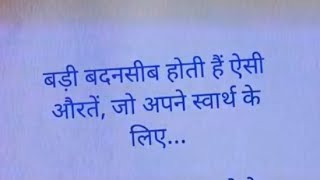 बड़ी बदनसीब होती हैं ऐसी
औरतें, जो अपने स्वार्थ के
लिए...